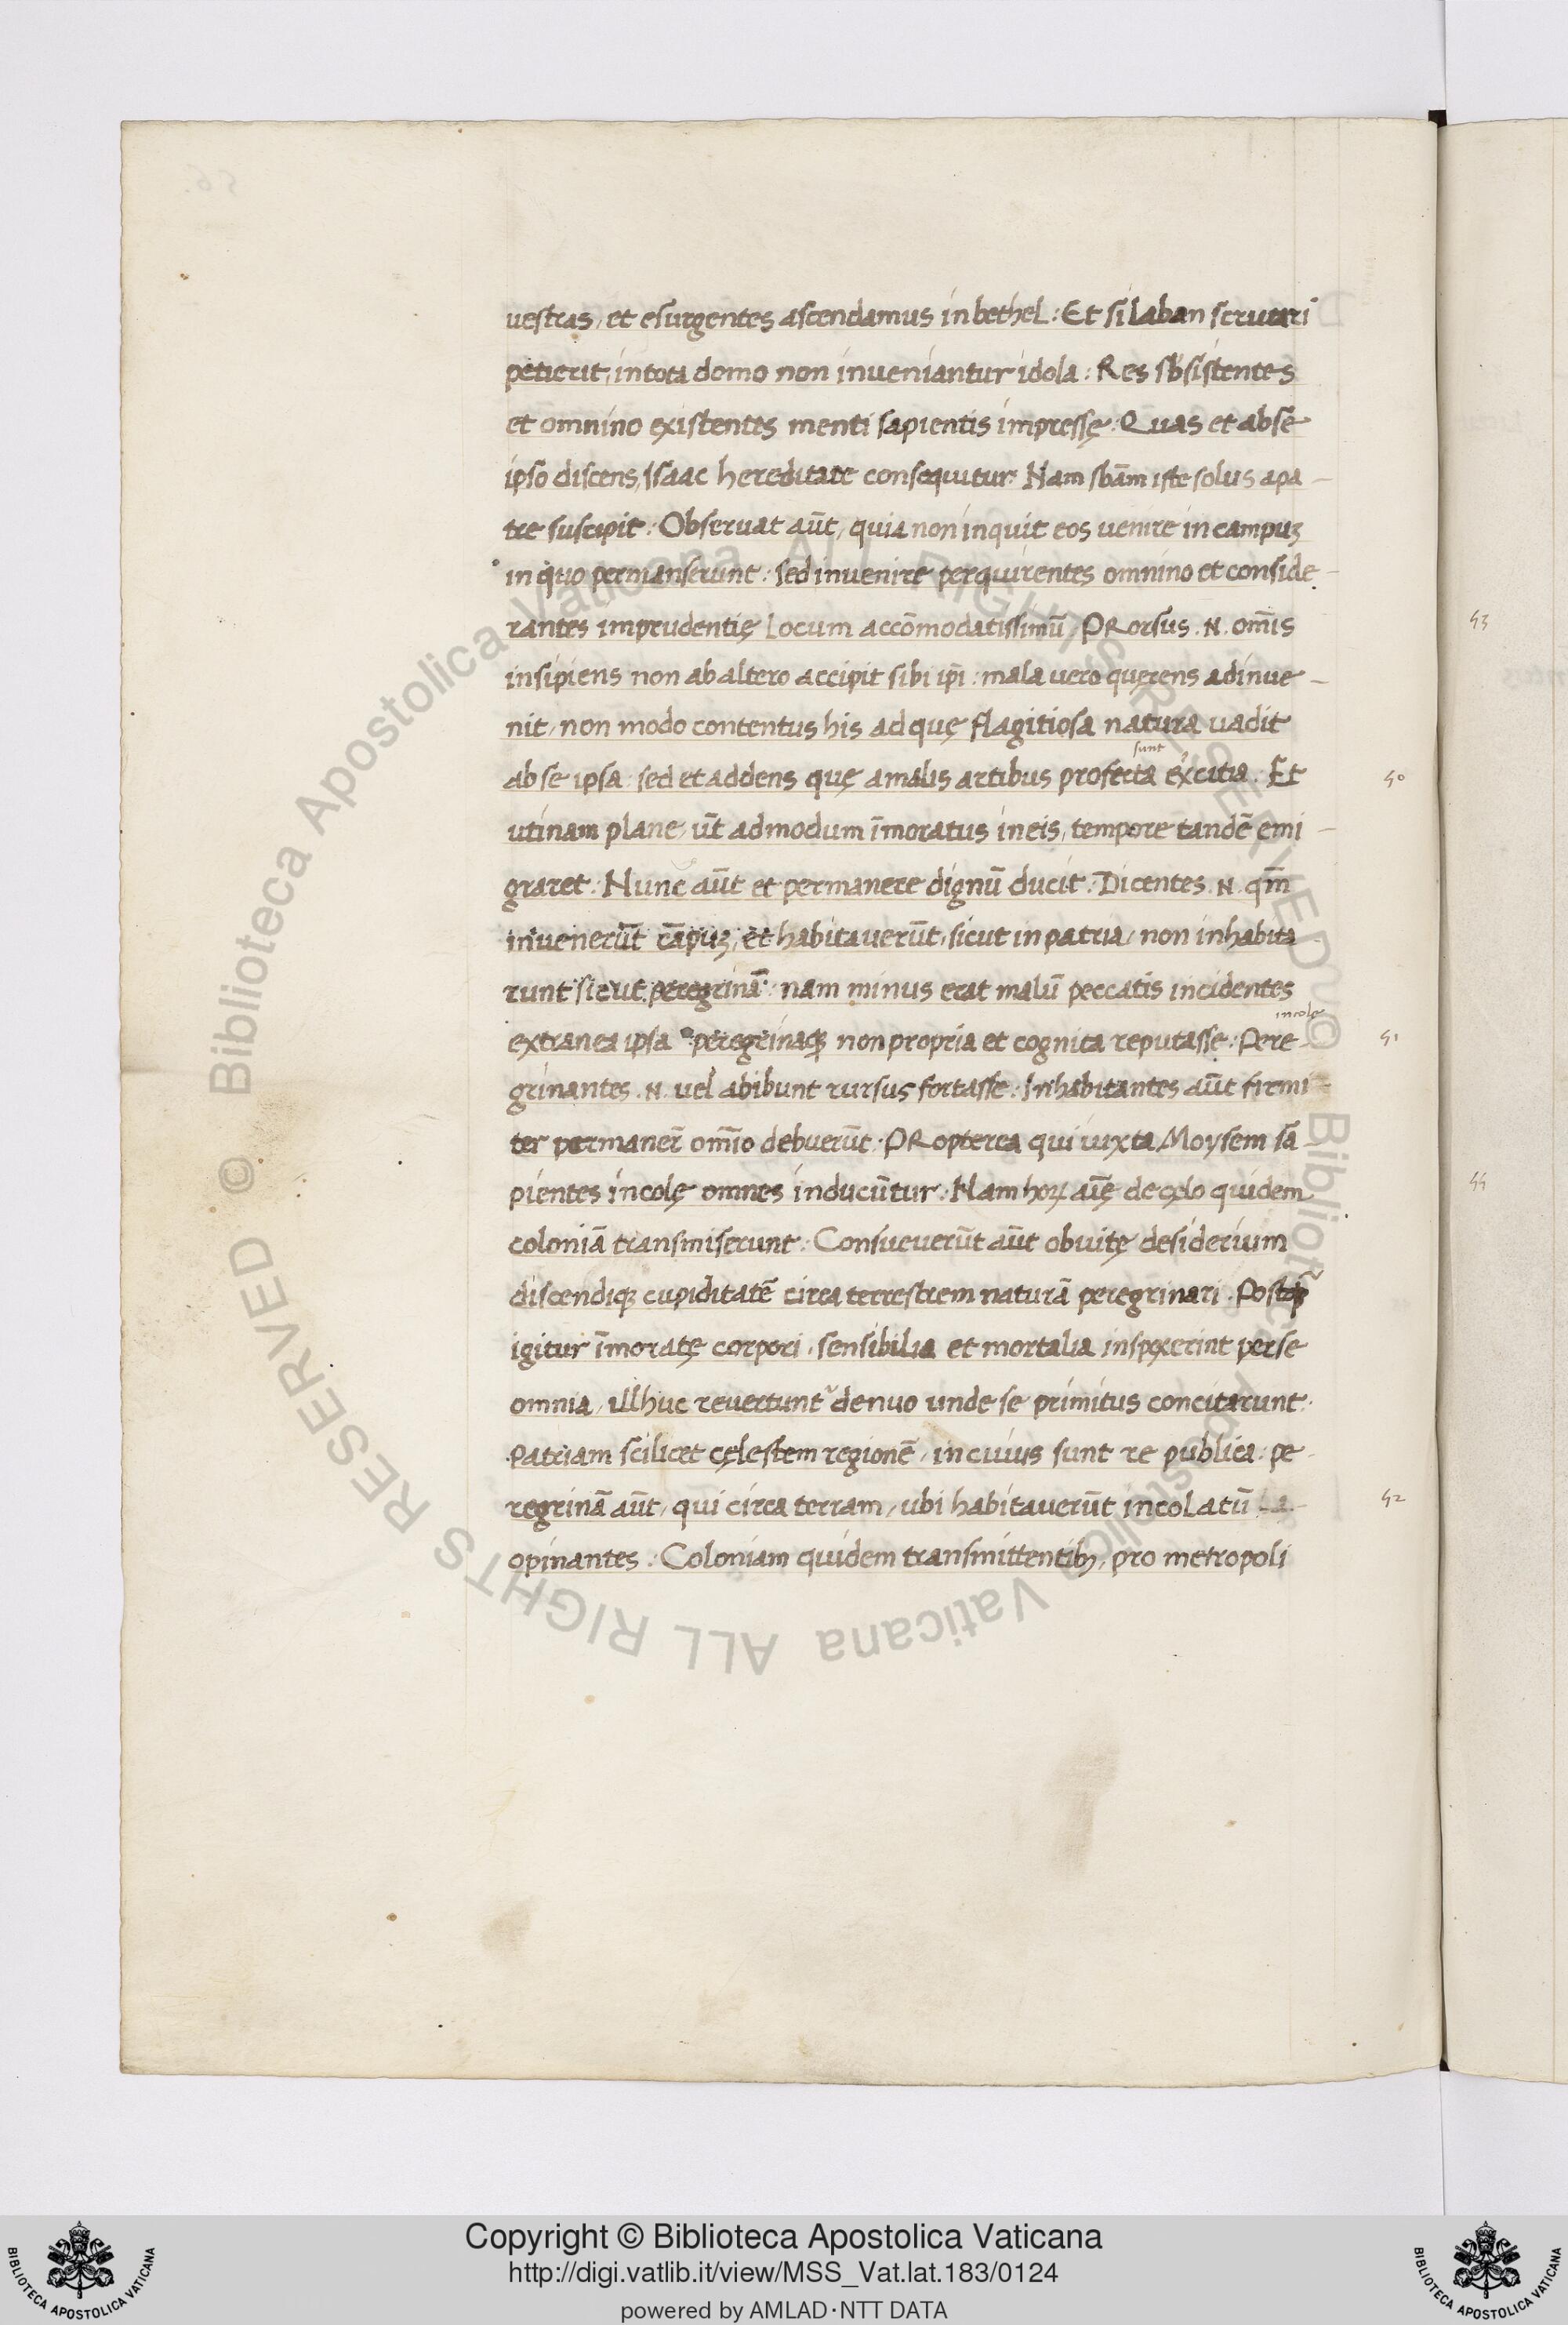 uestras, et esurgentes ascendamus in bethel: Et si laban scrutari
petierit, in tota domo non inueniantur idola: Res sb́sistentes
et omnino existentes menti sapientis impressę: Quas et abse
ipso discens, Isaac hereditate consequitur: Nam sb̄am iste solus apa
tre suscipit: Obseruat aūt, quia non inquit eos uenire in campuȝ
in quo permanserunt: sed inuenire perquirentes omnino et conside
rantes imprudentię locum accōmodatissimū: PRorsus .N. om̄is
insipiens non ab altero accipit sibi ip̄i: mala uero quęrens adinue
nit, non modo contentus his ad quę flagitiosa natura uadit
sunt
ab se ipsa: sed et addens quę amalis artibus profecta excitia: Et
utinam plane, ut̄ admodum īmoratus in eis, tempore tandē emi
graret: Nunc aūt et permanere dignū ducit: Dicentes .N. qm̄
inuenerūt cāpuȝ, et habitauerūt, sicut in patria, non inhabita
runt sicut peregrinā: nam minus erat malū peccatis incidentes
incolę
extranea ipsa peregrinaqȝ non propria et cognita reputasse: Pere
grinantes .N. uel abibunt rursus fortasse: Inhabitantes aūt firmi
ter permaner̄ om̄io debuerūt: PRopterea qui iuxta Moysem sā
pientes incolę omnes inducūtur: Nam horꝝ aīę de cęlo quidem
coloniā transmiserunt: Consueuerūt aūt obuitę desiderium
discendiqȝ cupiditatē circa terrestrem naturā peregrinari: Postq̄
igitur īmoratę corpori, sensibilia et mortalia inspexerint perse
omnia, illhuc reuertunt᷑ denuo unde se primitus concitarunt:
Patriam scilicet cęlestem regionē, in cuius sunt re publica: pe
regrinā aūt, qui circa terram, ubi habitauerūt incolatū
opinantes: Coloniam quidem transmittentibȝ, pro metropoli
50
51
52
53
54
Copyright © Biblioteca Apostolica Vaticana
http://digi.vatlib.it/view/MSS_Vat.lat.183/0124
powered by AMLAD·NTT DATA
BIBLIOTECA APOSTOLICA VATICANA
BIBLIOTECA APOSTOLICA VATICANA
© Biblioteca Apostolica Vaticana ALL RIGHTS RESERVED
© Biblioteca Apostolica Vaticana ALL RIGHTS RESERVED